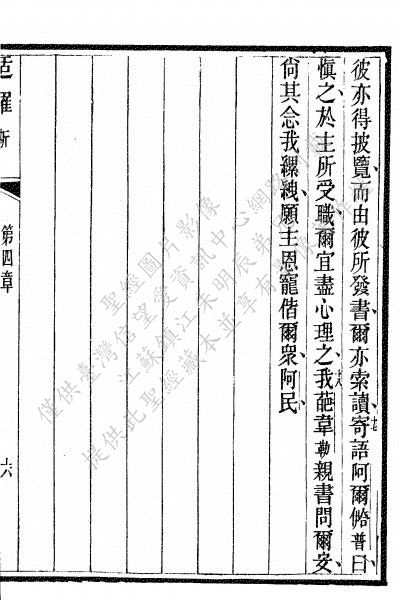 彼亦得披覽而由彼所發書爾亦索讀十七寄語阿爾普曰
慎之於主所受職爾宜盡心理之十八我葩韋勒親書問爾安
尙其念我縲絏願主恩寵偕爾衆阿民
羅新
第四章
六
聖經圖片影像
僅供臺灣信望愛資訊中心網路
江蘇鎮江朱明辰弟
提供此聖經藏本並享有